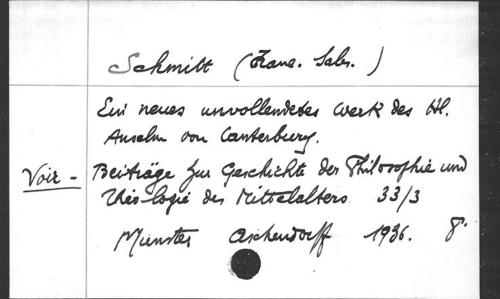 Schmitt (Franc. Sales.)
Ein neues unvollendetes Werk des Hl.
Anselm von Canterbury.
Voir - Beiträge zur Geschichte der Philosophie und
Theologie des Mittelalters 33/3
Münster Aschendorff 1936. 8°.